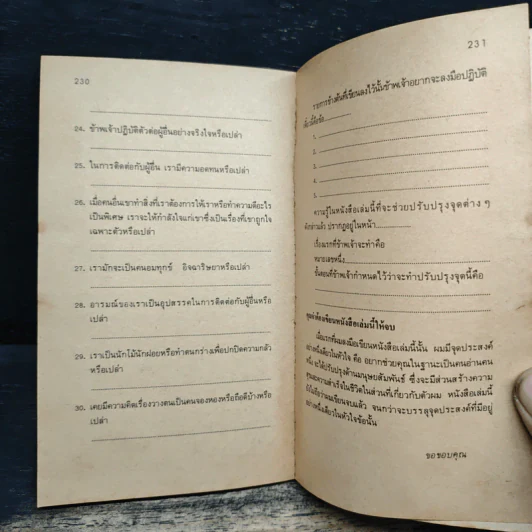 230
24. ข้าพเจ้าปฏิบัติตัวต่อผู้อื่นอย่างจริงใจหรือเปล่า
25. ในการติดต่อกับผู้อื่น เรามีความอดทนหรือเปล่า
26. เมื่อคนอื่นเขาทำสิ่งที่เราต้องการให้เราหรือทำความดีอะไร
เป็นพิเศษ เราจะให้กำลังใจแก่เขาซึ่งเป็นเรื่องที่เขาถูกใจ
เฉพาะตัวหรือเปล่า
27. เรามักจะเป็นคนอมทุกข์ อิจฉาริษยาหรือเปล่า
28. อารมณ์ของเราเป็นอุปสรรคในการติดต่อกับผู้อื่นหรือ
เปล่า
29. เราเป็นนักโม้นักฝอยหรือทำตนกร่างเพื่อปกปิดความกลัว
หรือเปล่า
30. เคยมีความคิดเรื่องวางตนเป็นคนจองหองหรือถือดีบ้างหรือ
เปล่า
231
รายการข้างต้นที่เขียนลงไว้นั้นข้าพเจ้าอยากจะลงมือปฏิบัติ
1.
2.
3.
4.
5.
ความรู้ในหนังสือเล่มนี้ที่จะช่วยปรับปรุงจุดต่าง ๆ
ดังกล่าวแล้ว ปรากฏอยู่ในหน้า
เรื่องแรกที่ข้าพเจ้าจะทำคือ
หมายเลขหนึ่ง
ขั้นตอนที่ข้าพเจ้ากำหนดไว้ว่าจะทำปรับปรุงจุดนี้คือ
เขียนหนังสือเล่มนี้ให้จบ
เมื่อแรกที่ผมลงมือเขียนหนังสือเล่มนี้นั้น ผมมีจุดประสงค์
อย่างหนึ่งเดียวในหัวใจ คือ อยากช่วยคุณในฐานะเป็นคนอ่านคน
หนึ่ง จะได้ปรับปรุงด้านมนุษยสัมพันธ์ ซึ่งจะมีส่วนสร้างความ
ความสำเร็จในชีวิตในส่วนที่เกี่ยวกับตัวผม หนังสือเล่มนี้
จบแล้ว จนกว่าจะบรรลุจุดประสงค์ที่มีอยู่
อย่างหนึ่งเดียวในหัวใจข้อนั้น
ขอขอบคุณ